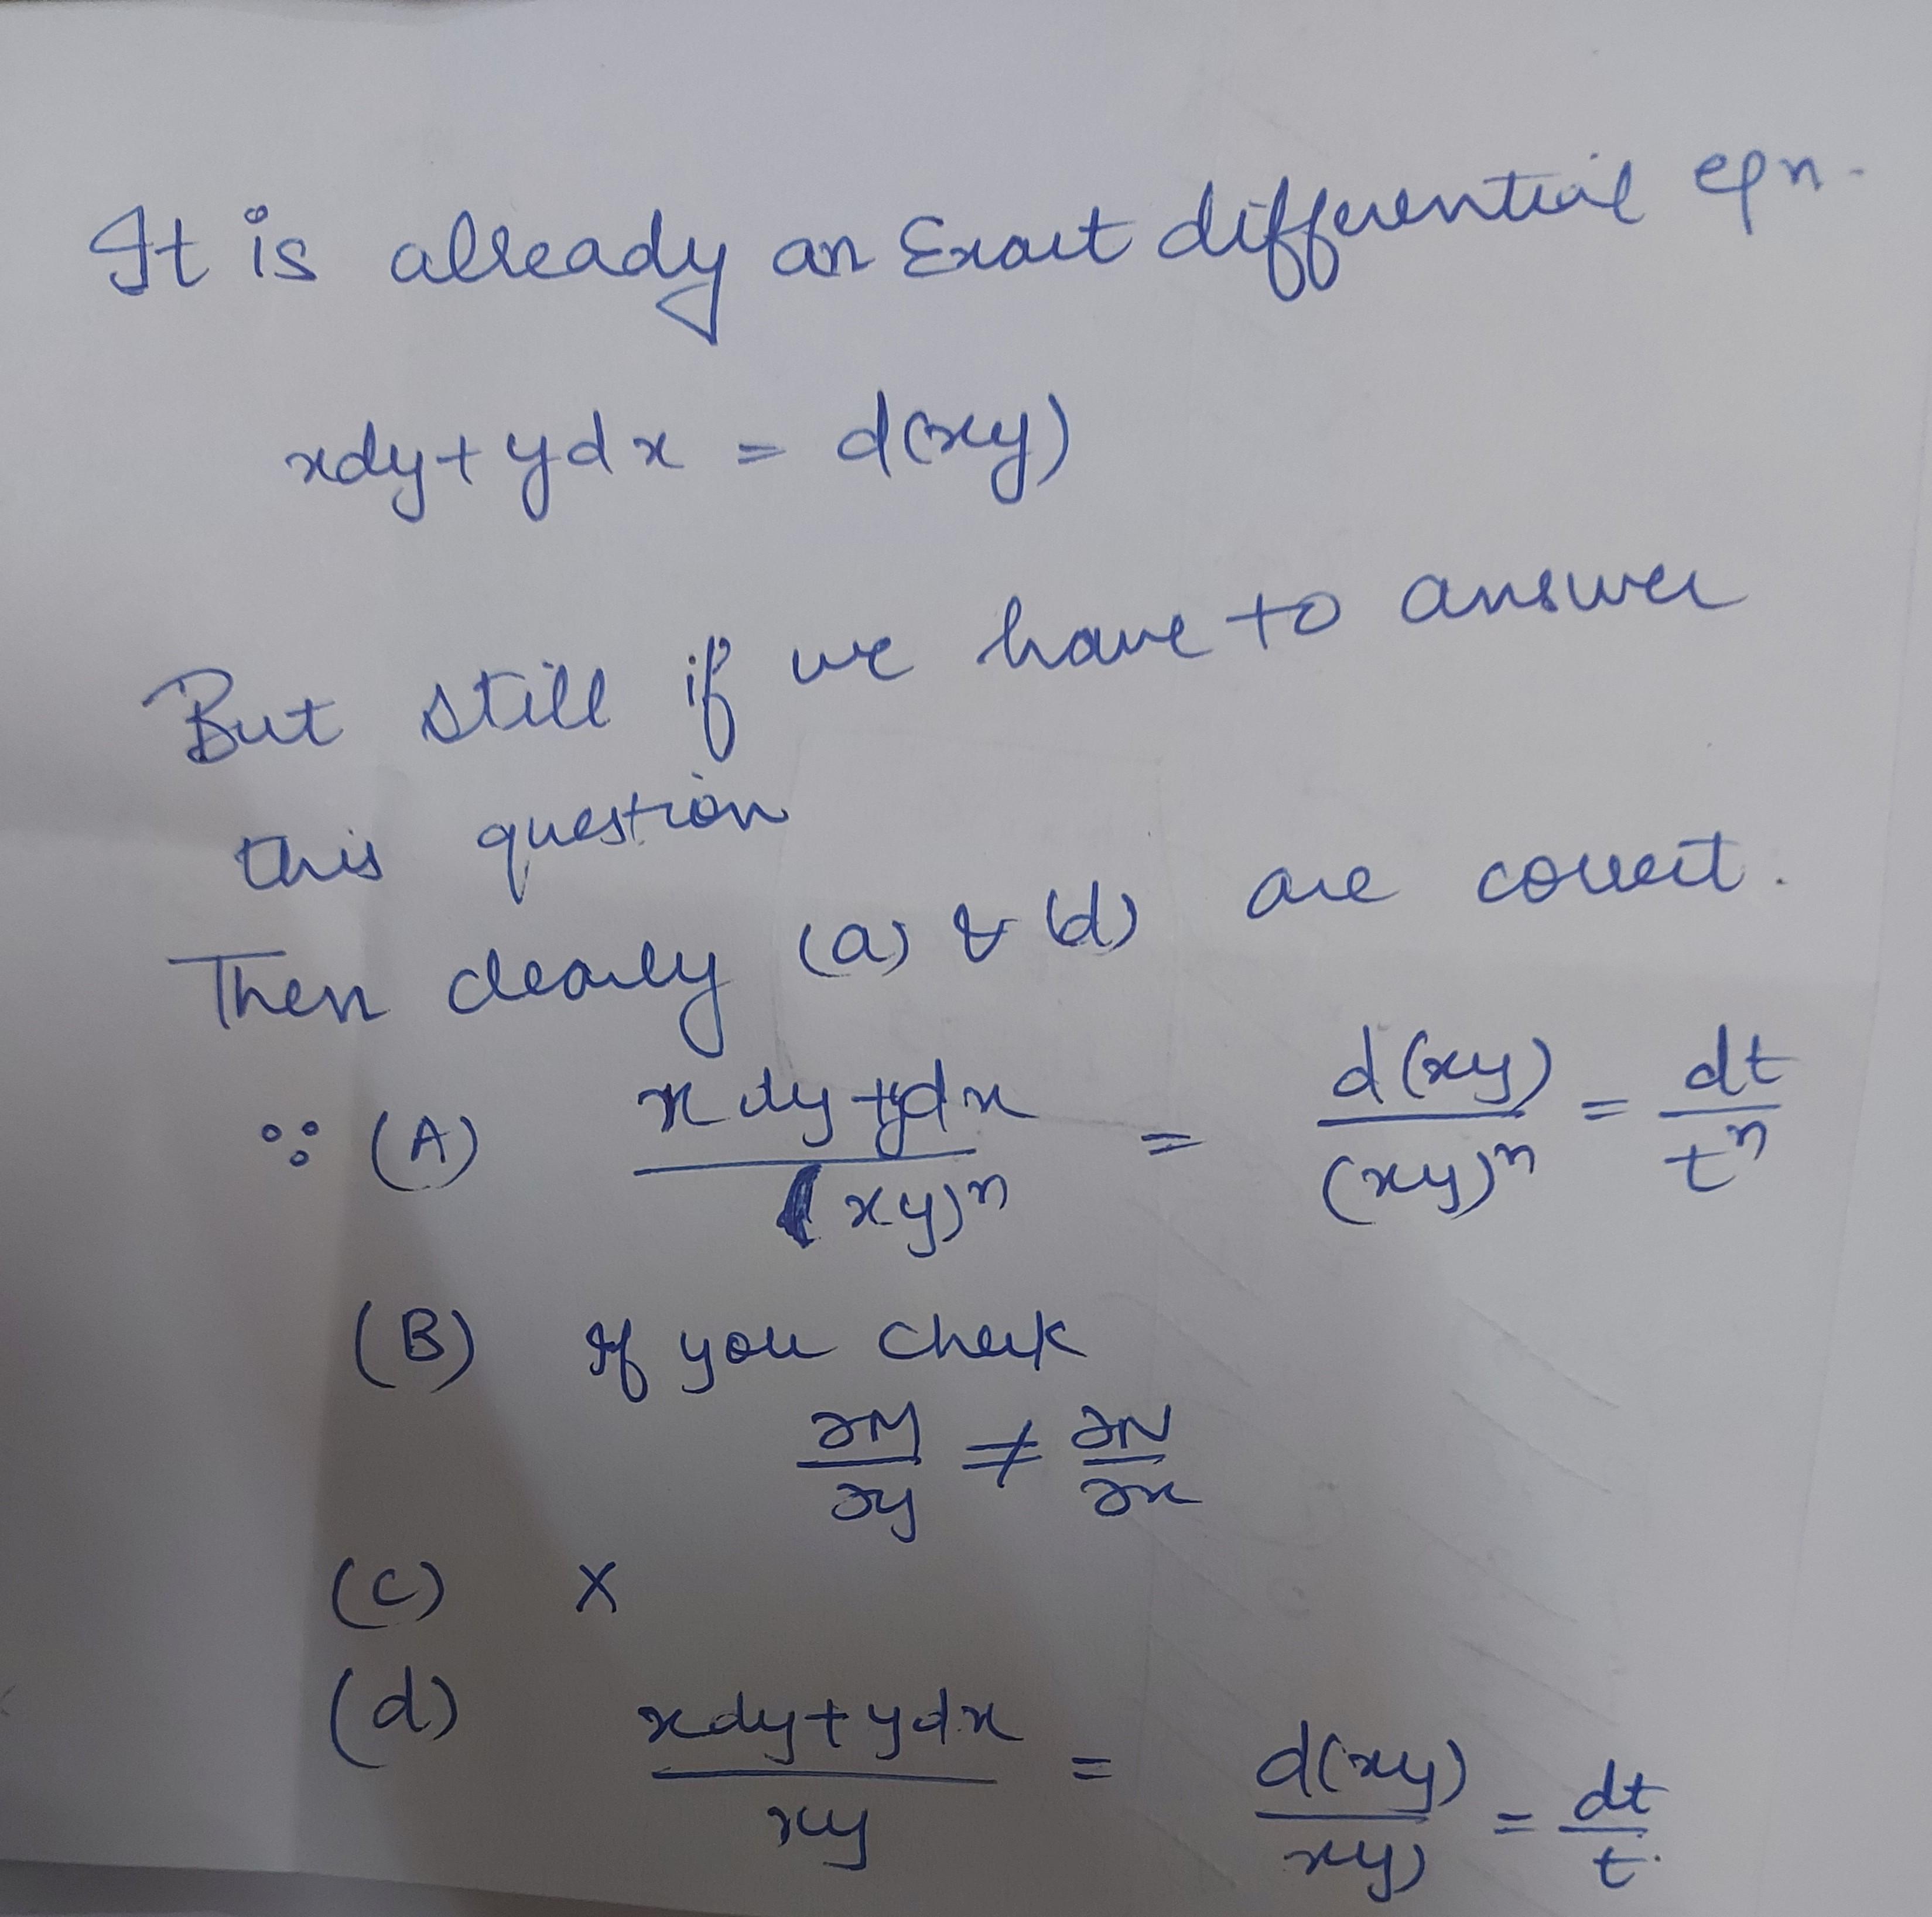 It is already an Exact differential eqn.
xdy + ydx = d(xy)
But still if we have to answer
this question
Then clearly (a) & (d) are correct.
∵ (A) x dy + ydx / (xy)^n = d(xy) / (xy)^n = dt / t^n
(B) If you check
∂M/∂y ≠ ∂N/∂x
(C) X
(d) xdy + ydx / xy = d(xy) / xy) = dt / t.